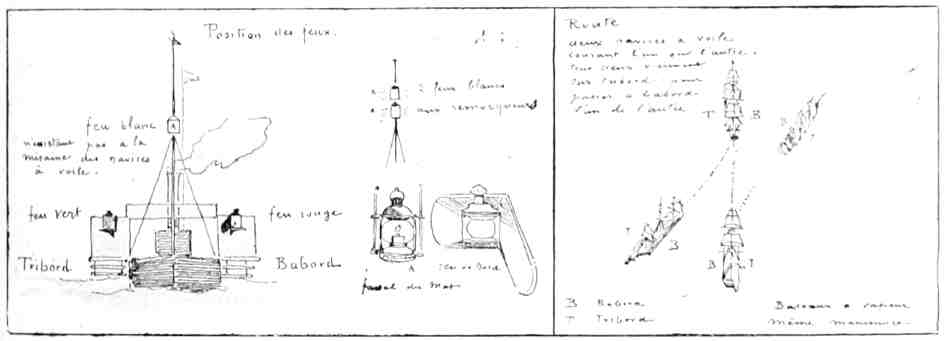 Position des feux.
feu blanc
n'existant pas a la
misaine des navires
à voile.
2 feux blancs
aux remorqueurs
feu vert
feu rouge
Tribord
Babord
A
feu de bord
fanal de mat
Route
deux navires a voile
courant l'un sur l'autre.
tous deux viennent
sur tribord pour
passer a babord
l'un de l'autre
T B
B
T
B
B T
B Babord
T Tribord
Bateaux a vapeur
même manœuvre.